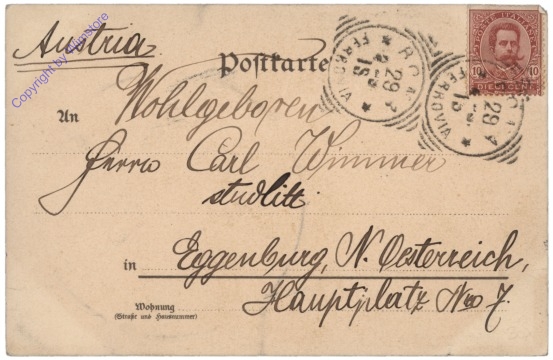 Austria
Postkarte
POSTE ITALIANE
10 10
DIECI CENT.
ROMA
FERROVIA
29
15
ROMA
FERROVIA
29
15
An Wohlgeboren
Herrn Carl Wimmer
stud litt
in Eggenburg, N. Oesterreich,
Hauptplatz No 7.
Wohnung
(Straße und Hausnummer)
Copyright by